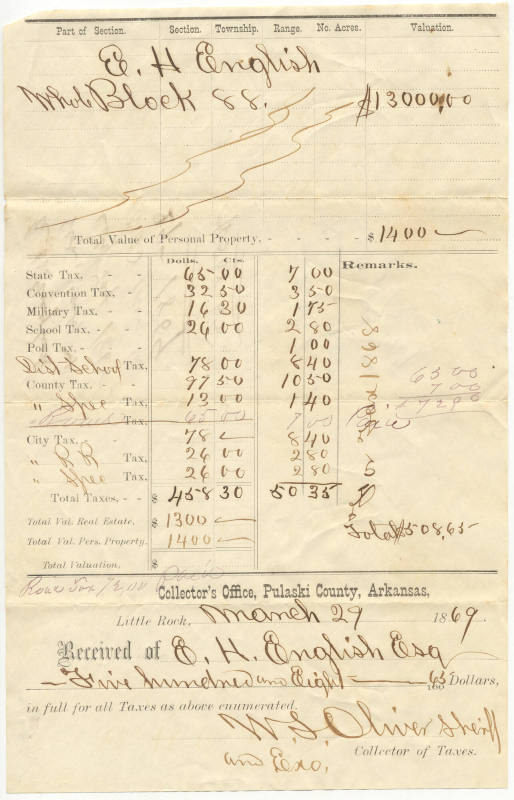 Part of Section. Section. Township. Range. No. Acres. Valuation.
E. H English
Whole Block 88. $13000,00
Total Value of Personal Property, - - - - $1400
Dolls. Cts. Remarks.
State Tax, - - 65 00 7 00
Convention Tax, - 32 50 3 50
Military Tax, - - 16 30 1 75
School Tax, - - 26 00 2 80
Poll Tax, - - 1 00
Dist School Tax, 78 00 8 40
County Tax. - - 97 50 10 50 65 00
" Spec Tax, 13 00 1 40 7 00
Tax, 65 00 7 00
City Tax, - - 78 8 40
" R R Tax, 26 00 2 80
" Spec Tax, 26 00 2 80
Total Taxes, - - $ 458 30 50 35
Total Val. Real Estate, $ 1300 Total $508,65
Total Val. Pers. Property. 1400
Total Valuation, $
Collector's Office, Pulaski County, Arkansas,
Little Rock, March 29 1869
Received of E. H. English Esq
Five hundred and Eight 65/100 Dollars,
in full for all Taxes as above enumerated.
W. S. Oliver Sheriff
Collector of Taxes.
and Exo,